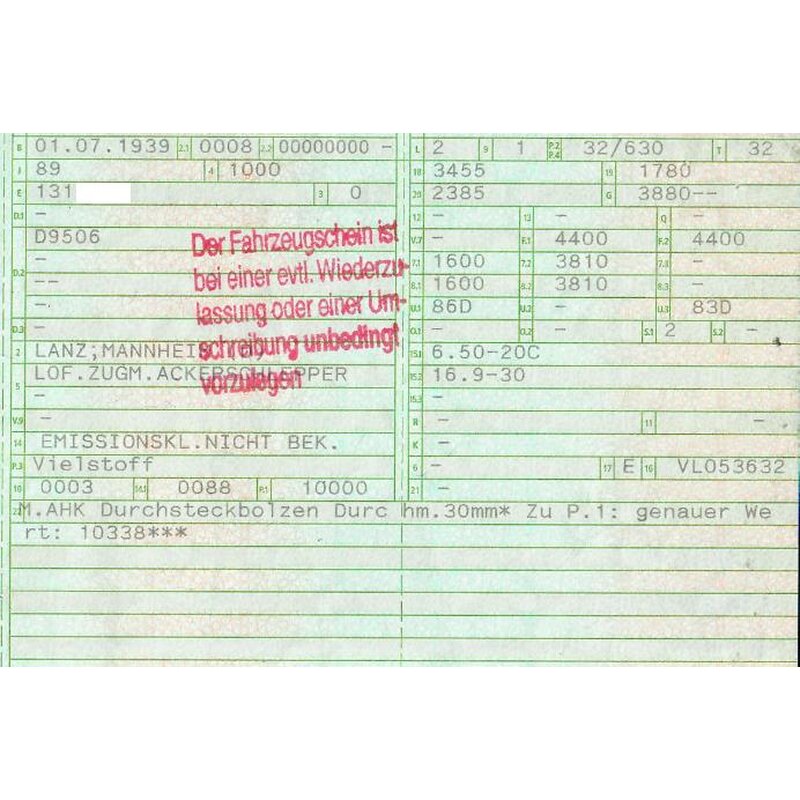 B 01.07.1939 2.1 0008 2.2 00000000 - L 2 9 1 P.2 P.4 32/630 T 32
J 89 4 1000 18 3455 19 1780
E 131 3 0 20 2385 G 3880--
D.1 - 12 - 13 - Q -
D9506 V.7 - F.1 4400 F.2 4400
D.2 - 7.1 1600 7.2 3810 7.3 -
-- 8.1 1600 8.2 3810 8.3 -
-- U.1 86D U.2 - U.3 83D
D.3 - O.1 - O.2 - S.1 2 S.2 -
2 LANZ,MANNHEI 15.1 6.50-20C
5 LOF.ZUGM.ACKERSCHLEPPER 15.2 16.9-30
- 15.3 -
V.9 - R - 11 -
14 EMISSIONSKL.NICHT BEK. K -
P.3 Vielstoff 6 - 17 E 16 VL053632
10 0003 14.1 0088 P.1 10000 21 -
22 M.AHK Durchsteckbolzen Durc hm.30mm* Zu P.1: genauer We
rt: 10338***
Der Fahrzeugschein ist
bei einer evtl. Wiederzu-
lassung oder einer Um-
schreibung unbedingt
vorzulegen